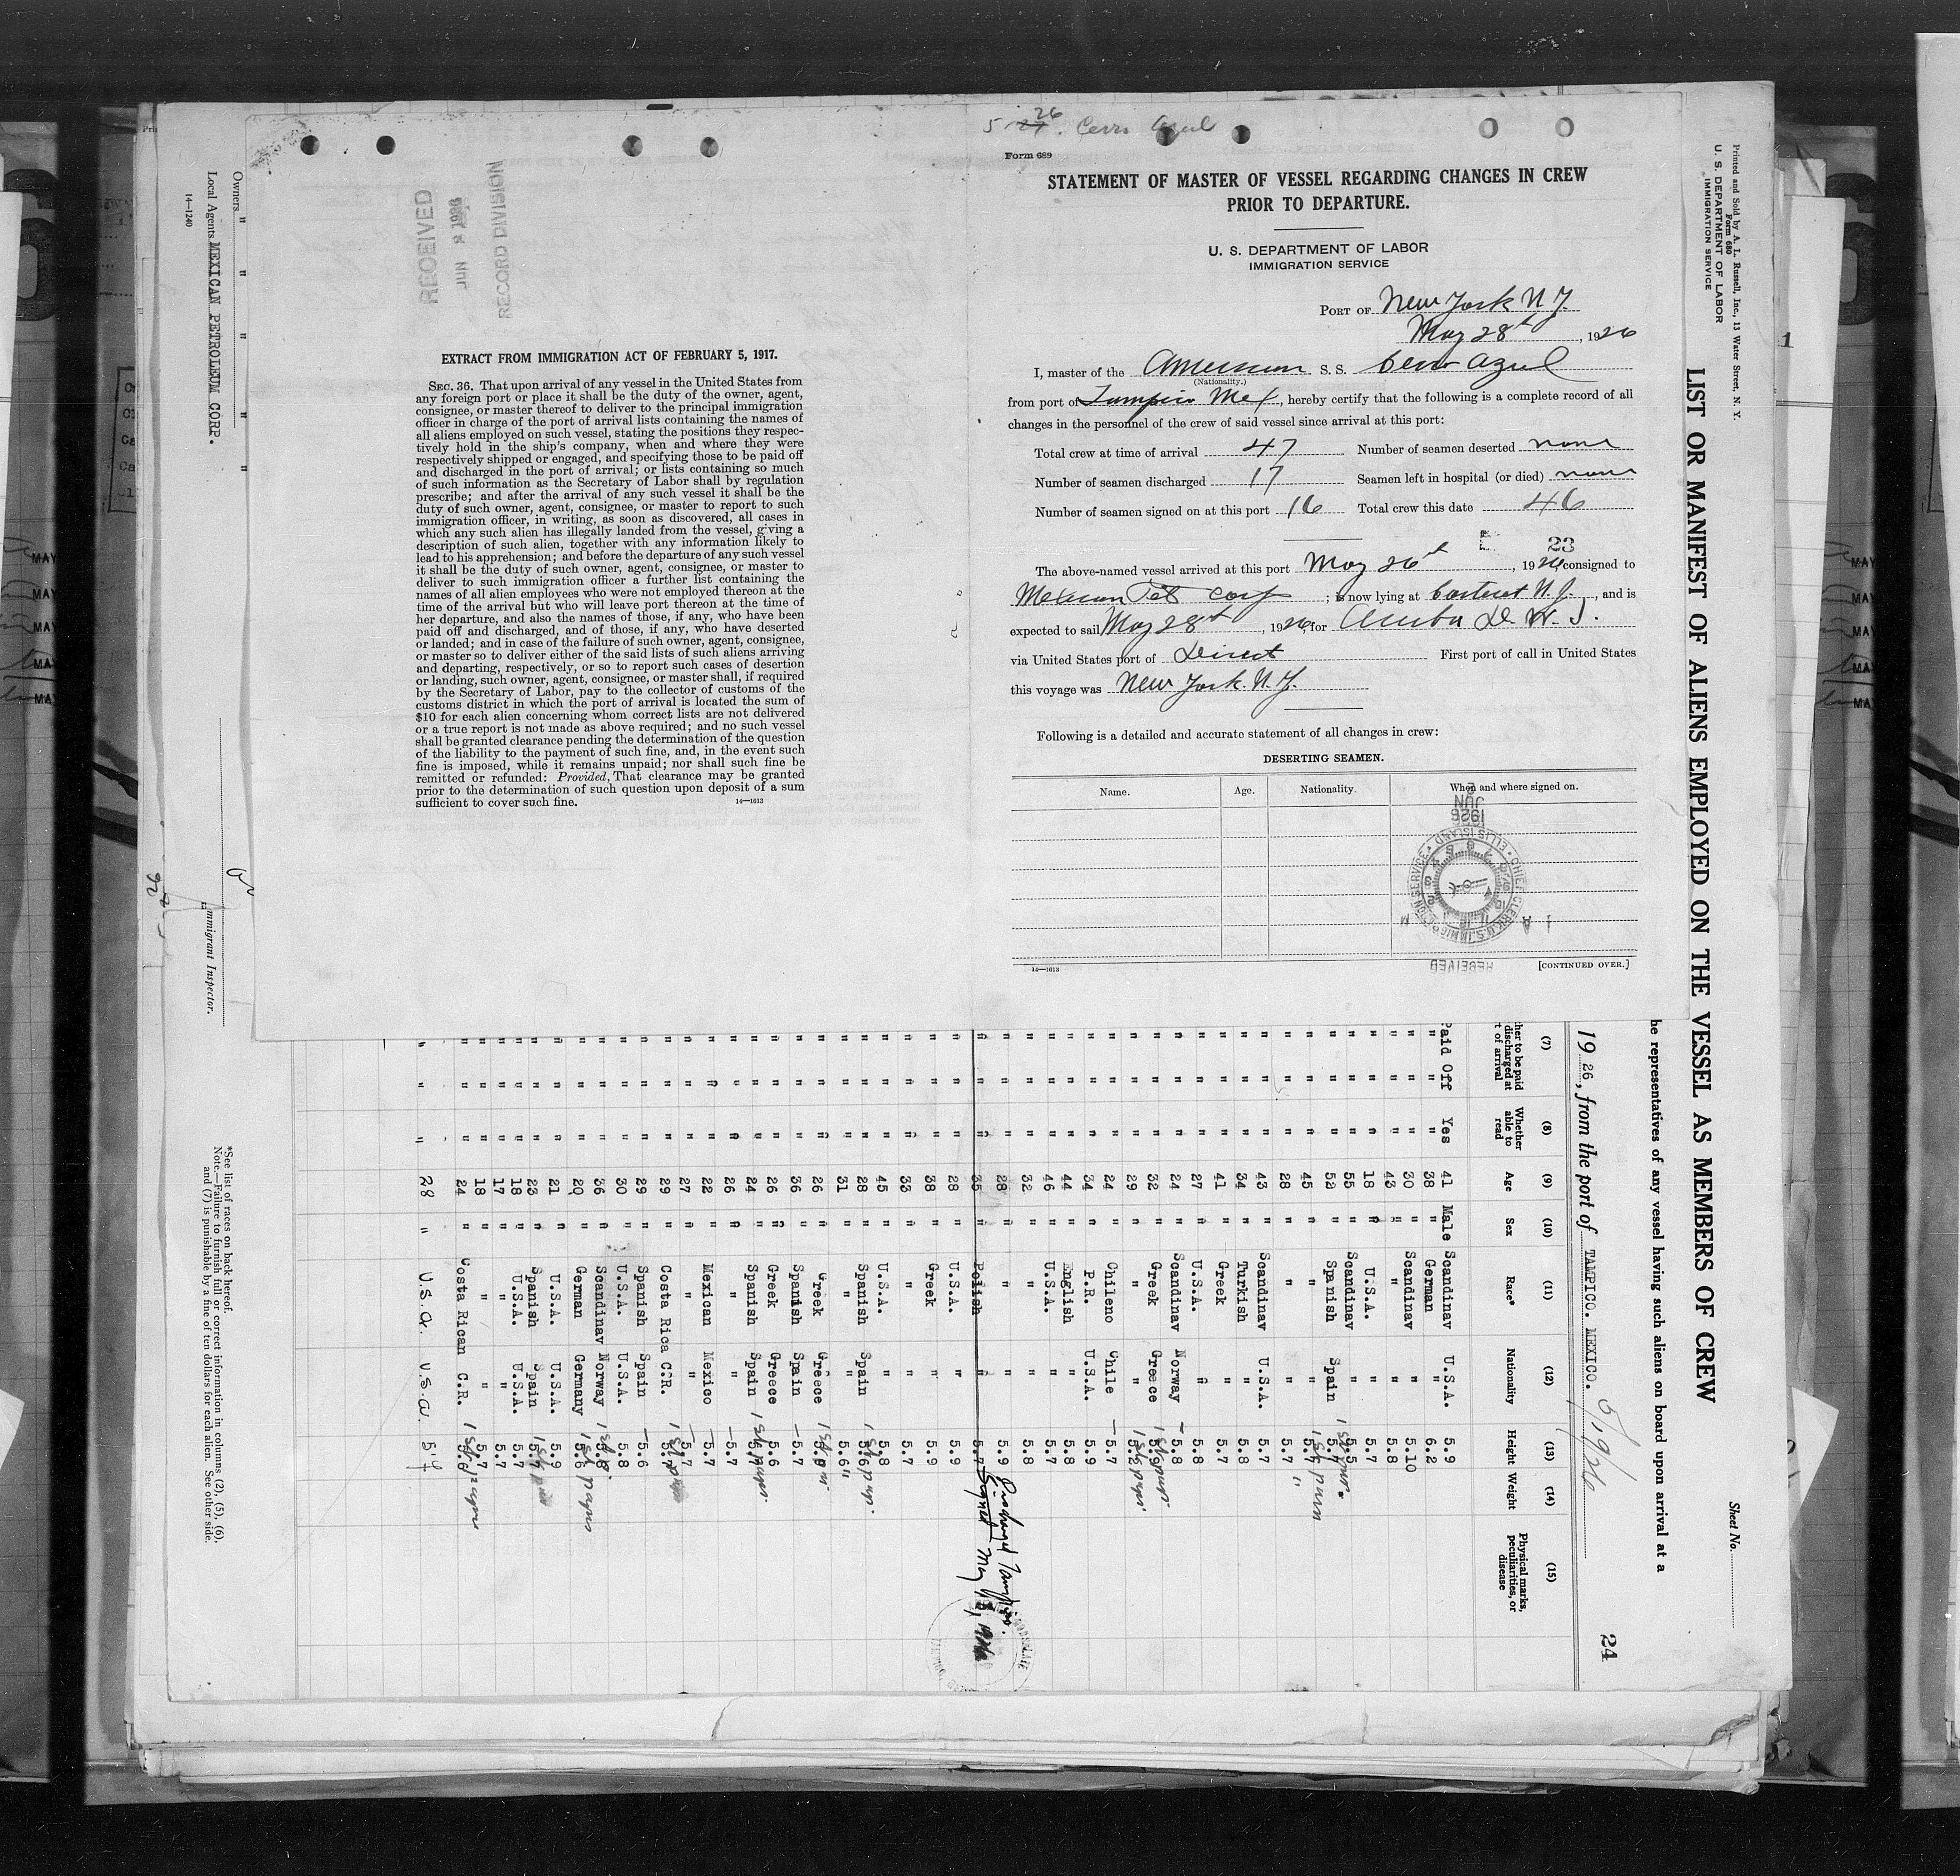 5 27 26. Cerro Azul
Form 689
STATEMENT OF MASTER OF VESSEL REGARDING CHANGES IN CREW
PRIOR TO DEPARTURE.
U. S. DEPARTMENT OF LABOR
IMMIGRATION SERVICE
PORT OF New York N.Y.
May 28th, 1926
I, master of the American S. S. Cerro Azul
(Nationality.)
from port of Tampico Mex, hereby certify that the following is a complete record of all
changes in the personnel of the crew of said vessel since arrival at this port:
Total crew at time of arrival 47 Number of seamen deserted none
Number of seamen discharged 17 Seamen left in hospital (or died) none
Number of seamen signed on at this port 16 Total crew this date 46
23
The above-named vessel arrived at this port May 26th, 1926 consigned to
Mexican Pet Corp; is now lying at Carteret N.J., and is
expected to sail May 28th, 1926, for Aruba D. W. I.
via United States port of Direct First port of call in United States
this voyage was New York. N.Y.
Following is a detailed and accurate statement of all changes in crew:
DESERTING SEAMEN.
Name. Age. Nationality. When and where signed on.
14—1613 [CONTINUED OVER.]
RECEIVED
JUN 5 1926
RECORD DIVISION
EXTRACT FROM IMMIGRATION ACT OF FEBRUARY 5, 1917.
SEC. 36. That upon arrival of any vessel in the United States from
any foreign port or place it shall be the duty of the owner, agent,
consignee, or master thereof to deliver to the principal immigration
officer in charge of the port of arrival lists containing the names of
all aliens employed on such vessel, stating the positions they respec-
tively hold in the ship's company, when and where they were
respectively shipped or engaged, and specifying those to be paid off
and discharged in the port of arrival; or lists containing so much
of such information as the Secretary of Labor shall by regulation
prescribe; and after the arrival of any such vessel it shall be the
duty of such owner, agent, consignee, or master to report to such
immigration officer, in writing, as soon as discovered, all cases in
which any such alien has illegally landed from the vessel, giving a
description of such alien, together with any information likely to
lead to his apprehension; and before the departure of any such vessel
it shall be the duty of such owner, agent, consignee, or master to
deliver to such immigration officer a further list containing the
names of all alien employees who were not employed thereon at the
time of the arrival but who will leave port thereon at the time of
her departure, and also the names of those, if any, who have been
paid off and discharged, and of those, if any, who have deserted
or landed; and in case of the failure of such owner, agent, consignee,
or master so to deliver either of the said lists of such aliens arriving
and departing, respectively, or so to report such cases of desertion
or landing, such owner, agent, consignee, or master shall, if required
by the Secretary of Labor, pay to the collector of customs of the
customs district in which the port of arrival is located the sum of
$10 for each alien concerning whom correct lists are not delivered
or a true report is not made as above required; and no such vessel
shall be granted clearance pending the determination of the question
of the liability to the payment of such fine, and, in the event such
fine is imposed, while it remains unpaid; nor shall such fine be
remitted or refunded: Provided, That clearance may be granted
prior to the determination of such question upon deposit of a sum
sufficient to cover such fine. 14—1613
Printed and Sold by A. L. Russell, Inc., 13 Water Street, N. Y.
Form 680
U. S. DEPARTMENT OF LABOR
IMMIGRATION SERVICE
Sheet No.
LIST OR MANIFEST OF ALIENS EMPLOYED ON THE VESSEL AS MEMBERS OF CREW
he representatives of any vessel having such aliens on board upon arrival at a
1926, from the port of TAMPICO. MEXICO. 5/19/26
24
(7) (8) (9) (10) (11) (12) (13) (14) (15)
Whether able to read Age Sex Race* Nationality Height Weight Physical marks, peculiarities, or disease
Paid Off Yes 41 Male Scandinav U.S.A. 5.9
" " " 38 " German " 6.2
" " " 30 " Scandinav " 5.10
" " " 43 " " " 5.8
" " " 18 " U.S.A. " 5.7
" " " 55 " Scandinav "
" " " 52 " Spanish Spain
" " " 45 " "
" " " 28 " " " 5.7
" " " 43 " Scandinav U.S.A. 5.7
" " " 34 " Turkish " 5.8
" " " 41 " Greek " 5.7
" " " 27 " U.S.A. " 5.8
" " " 24 " Scandinav Norway 5.8
" " " 32 " Greek Greece
" " " 29 " " "
" " " 24 " Chileno Chile 5.7
" " " 34 " P.R. U.S.A. 5.9
" " " 44 " English " 5.8
" " " 46 " U.S.A. " 5.7
" " " 32 " " " 5.8
" " " 28 " " " 5.9
" " " 35 " Polish " 5.7 Discharged Tampico.
" " " 28 " U.S.A. " 5.9
" " " 38 " Greek " 5.9
" " " 33 " " " 5.7
" " " 45 " U.S.A. " 5.8
" " " 28 " Spanish Spain
" " " 31 " " " 5.6
" " " 26 " Greek Greece
" " " 36 " Spanish Spain 5.7
" " " 26 " Greek Greece 5.6
" " " 24 " Spanish Spain
" " " 26 " " " 5.7
" " " 22 " Mexican Mexico 5.7
" " " 27 " " " 5.7
" " " 29 " Costa Rica C.R.
" " " 29 " Spanish Spain 5.6
" " " 30 " U.S.A. U.S.A. 5.8
" " " 36 " Scandinav Norway
" " " 20 " German Germany 5.6
" " " 21 " U.S.A. U.S.A. 5.9
" " " 23 " Spanish Spain
" " " 18 " U.S.A. U.S.A. 5.7
" " " 17 " " " 5.7
" " " 18 " " " 5.7
" " " 24 " Costa Rican C.R. 5.6
" " " 28 " U.S.A. U.S.A.
*See list of races on back hereof.
Note.—Failure to furnish full or correct information in columns (2), (5), (6),
and (7) is punishable by a fine of ten dollars for each alien. See other side.
Immigrant Inspector.
Owners " " " "
Local Agents MEXICAN PETROLEUM CORP.
14—1240